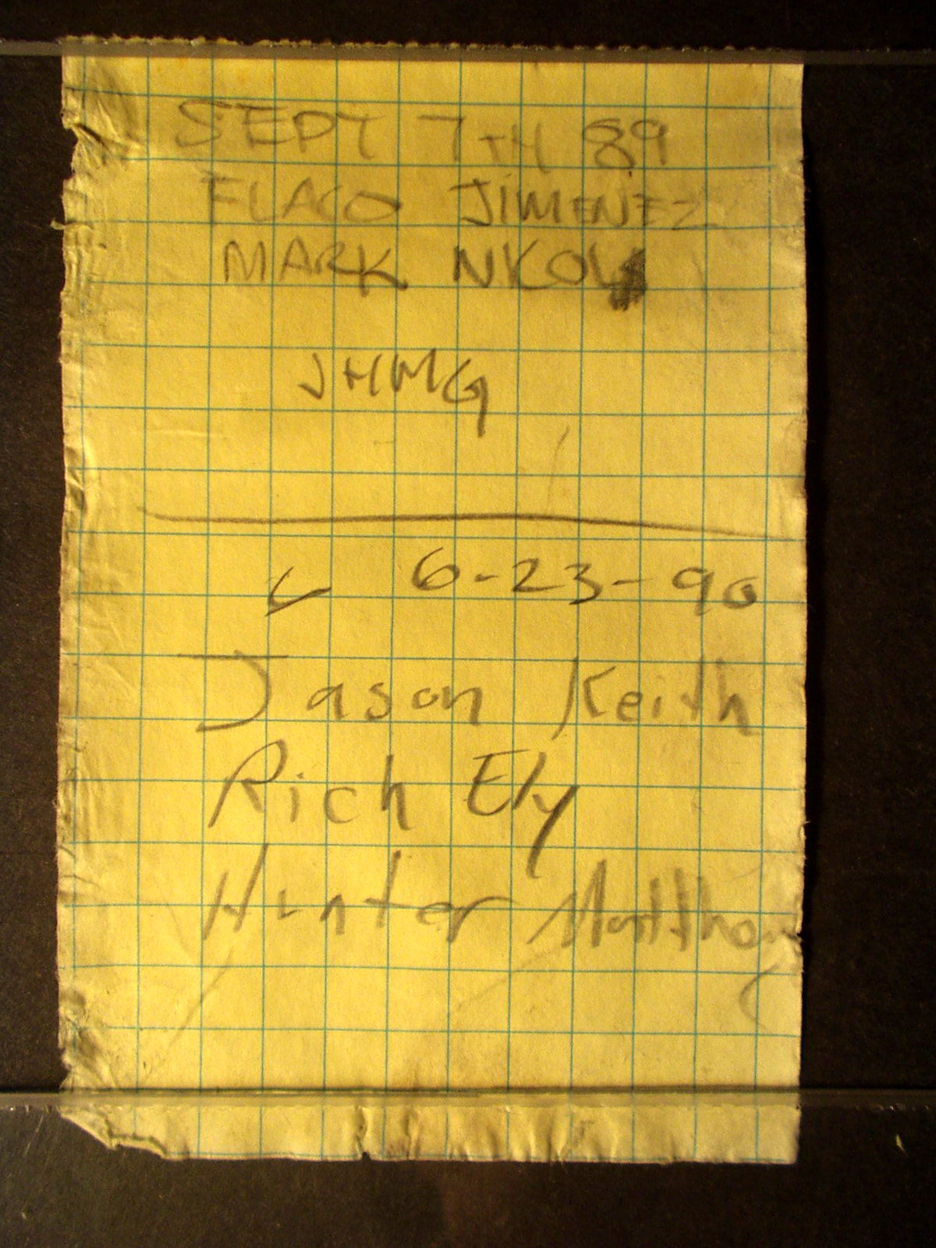 SEPT 7TH 89
FLACO JIMENEZ
MARK
JHMG
6-23-90
Jason Keith
Rich Ely
Hunter